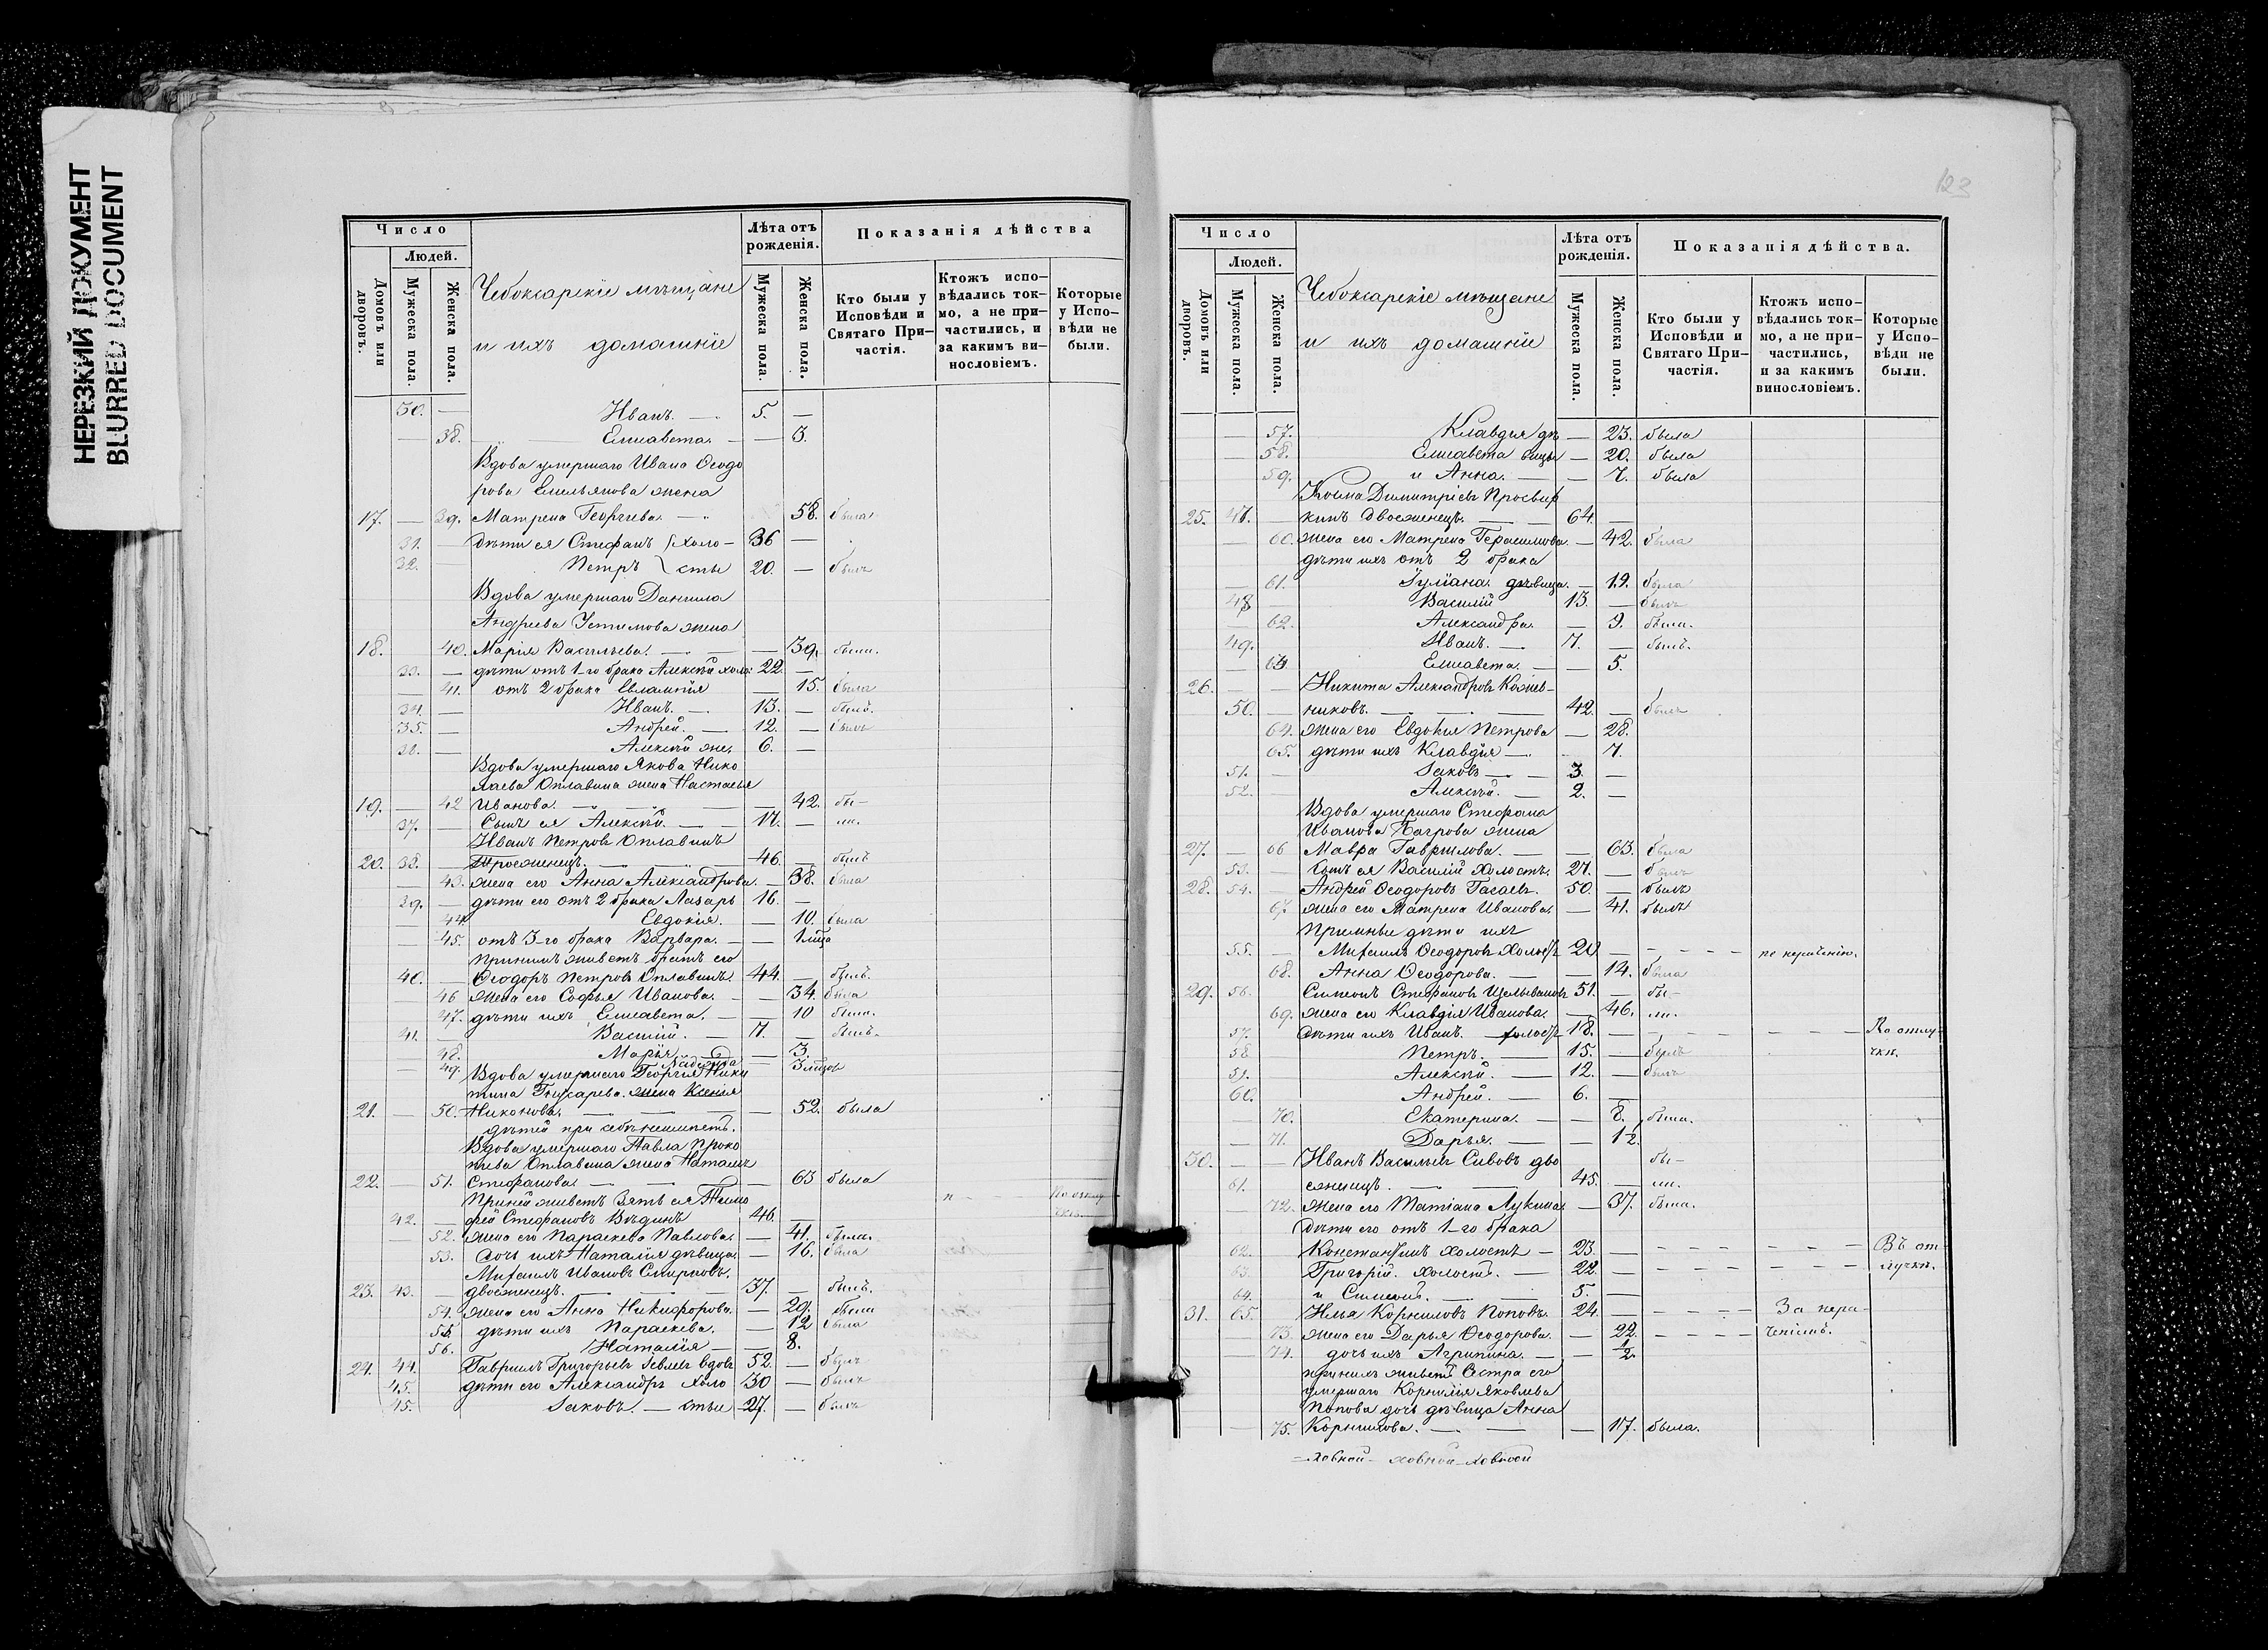 НЕРЕЗКИЙ ДОКУМЕНТ
BLURRED DOCUMENT
Число
Людей.
Домовъ или дворовъ.
Мужеска пола.
Женска пола.
Чебоксарскіе мѣщане
и ихъ домашніе
Лѣта отъ рожденія.
Мужеска пола.
Женска пола.
Показанія дѣйства
Кто были у Исповѣди и Святаго Причастія.
Ктожъ исповѣдались токмо, а не причастились, и за какимъ винословіемъ.
Которые у Исповѣди не были.
30. — Иванъ. — 5. —
— 38. Елисавета. — — 3.
Вдова умершаго Ивана Ѳеодо
рова Емельянова жена
17. — 39. Матрена Георгіева. — 58. была.
31. — дѣти ея Стефанъ } холо- 36 —
32. Петръ } сты 20. — былъ
Вдова умершаго Данила
Андреева Устимова жена
18. 40. Марія Васильева. — — 39. была.
33. — дѣти отъ 1-го брака Алексѣй холо: 22. —
— 41. отъ 2 брака Евлампія — 15. была
34. — Иванъ. — 13. — былъ.
35. — Андрей. — 12. — былъ
36. — Алексѣй же. 6. —
Вдова умершаго Якова Нико
лаева Оплавина жена Настасья
19. — 42 Иванова. — — — 42. бы-
37. — Сынъ ея Алексѣй. — — 17. — ли.
Иванъ Петровъ Оплавинъ
20. 38. — Троеженецъ. — — — 46. — былъ
— 43. жена его Анна Александрова. — 38. была
39. — дѣти его отъ 2 брака Лазарь 16. —
— 44. Евдокія. — 10. была
— 45. отъ 3-го брака Варвара. — — 1 мца
При нихъ живетъ братъ его
40. — Ѳеодоръ Петровъ Оплавинъ. 44. — былъ.
— 46 жена его Софья Иванова. — — 34. была
— 47. дѣти ихъ Елисавета. — — 10 была.
41. — Василій. — 7. — былъ.
— 48. Марія — — 3.
— 49. Надежда — 3 мцов
Вдова умершаго Георгія Ники
тина Гнусарева жена Ксенія
21. — 50. Никонова. — — — 52. была
дѣтей при себѣ не имѣетъ.
Вдова умершаго Павла Проко
пьева Оплавина жена Наталья
22. — 51. Стефанова. — — — 63 была
При ней живетъ зять ея Тимо По отлу-
42. — фей Стефановъ Вѣдинъ 46. — чкѣ
— 52. жена его Параскева Павлова. — 41. была.
— 53. дочь ихъ Наталія дѣвица. — 16. была
Михаилъ Ивановъ Смирновъ.
23. 43. — двоеженецъ. — — — 37. былъ.
— 54. жена его Анна Никифорова. — 29. была
55. дѣти ихъ Параскева. — 12 была
56. Наталія — — 8.
24. 44. Гавріилъ Григорьевъ вдовъ 52. — былъ
45. дѣти его Александръ холо 30 — былъ
45. Іаковъ. — стые 27. — былъ
123
Число
Людей.
Домовъ или дворовъ.
Мужеска пола.
Женска пола.
Чебоксарскіе мѣщане
и ихъ домашніе
Лѣта отъ рожденія.
Мужеска пола.
Женска пола.
Показанія дѣйства.
Кто были у Исповѣди и Святаго Причастія.
Ктожъ исповѣдались токмо, а не причастились, и за какимъ винословіемъ.
Которые у Исповѣди не были.
— 57. Клавдія дѣ — 23. была
— 58. Елисавета вицы — 20. была
59. и Анна. — — 7. была
Косма Димитріевъ Просвир
25. 47. — кинъ двоеженецъ. — — 64. —
— 60. жена его Матрена Герасимова. — 42. была
дѣти ихъ отъ 2 брака
— 61. Іуліана дѣвица. — 19. была
48 — Василій 13. — былъ
— 62. Александра. — 9. была.
49. — Иванъ. — 7. — былъ.
— 63 Елисавета. — — 5.
26. — — Никита Александровъ Кожев-
50. — никовъ. — — — 42. — былъ
64. жена его Евдокія Петрова — 28.
65. дѣти ихъ Клавдія — — 7.
51. — Іаковъ — — 3. —
52. — Алексѣй. — 2. —
Вдова умершаго Стефана
Иванова Багрова жена
27. — 66 Мавра Гаврилова. — — 63. была
53. — сынъ ея Василій Холостъ. 27. — былъ
28. 54. — Андрей Ѳеодоровъ Гасаевъ. 50. — былъ
67 жена его Матрена Иванова. — 41. былъ
Пріемные дѣти ихъ
55. — Михаилъ Ѳеодоровъ Холостъ 20 — — — — — по нерадѣнію.
68. Анна Ѳеодорова. — — 14. была
29. 56. Симеонъ Стефановъ 51. — бы-
69. жена его Клавдія Иванова. — 46. ли.
57. дѣти ихъ Иванъ. — холостъ 18. — — — — — — По отлу-
58 Петръ. — 15. — былъ чкѣ.
59. Алексѣй. — 12. — былъ
60. Андрей. — 6. —
— 70. Екатерина. — — 8. была.
— 71. Дарья. — — 12.
30. — — Иванъ Васильевъ Сивовъ дво бы-
61. еженецъ. — — 45. — ли.
— 72. жена его Татіана Лукина. — 37. была.
Дѣти его отъ 1-го брака
62. Константинъ холостъ — 23. — — — — — — Въ от-
63. Григорій. холостъ. — 22. — — — — — — лучкѣ.
64. и Симеонъ. — — 5. —
31. 65. Илья Корниловъ Поповъ. 24. — — — — — За нера-
— 73. жена его Дарья Ѳеодорова. — 22. — — — — ченіемъ.
— 74. дочь ихъ Агрипина. — — 1/2.
при нихъ живетъ Сестра его
умершаго Корнилія Яковлева
Попова дочь дѣвица Анна
— 75. Корнилова. — — — 17. была.